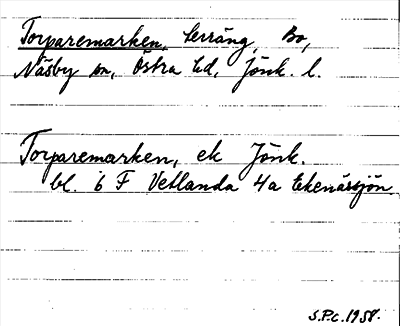 Torparemarken, terräng, Bo,
Näsby sn, Östra hd, Jönk. l.
Torparemarken, ek Jönk.
bl. 6 F Vetlanda 4a Ekenässjön
S.P.C. 1958.